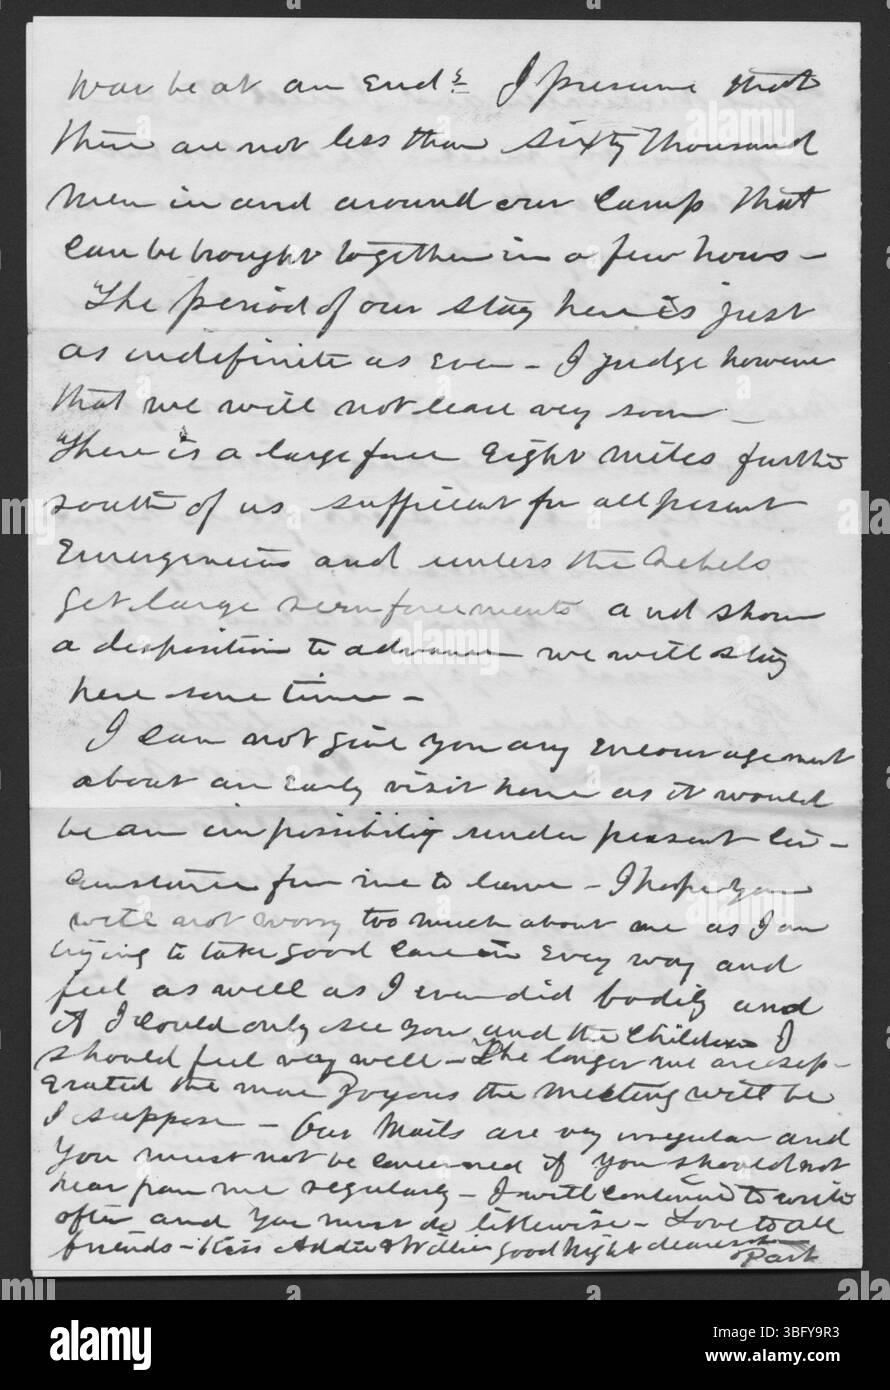 war be at an end? I presume that
there are not less than sixty thousand
men in and around our camp that
can be brought together in a few hours –
The period of our stay here is just
as indefinite as ever – I judge however
that we will not leave very soon –
There is a large force Eight miles further
south of us sufficient for all present
Emergencies and unless the rebels
get large reinforcements and show
a disposition to advance we will stay
here some time –
I can not give you any encouragement
about an early visit home as it would
be an impossibility under present cir-
cumstances for me to leave – I hope you
will not worry too much about me as I am
trying to take good care in every way and
feel as well as I ever did bodily and
if I could only see you and the Children I
should feel very well – The longer we are sep-
erated the more Joyous the meeting will be
I suppose – Our Mails are very irregular and
you must not be concerned if you should not
hear from me regularly – I will continue to write
often and you must do likewise – Love to all
friends – Kiss Addie & Willie good night dearest
Park
alamy
Image ID: 3BFY9R3
www.alamy.com